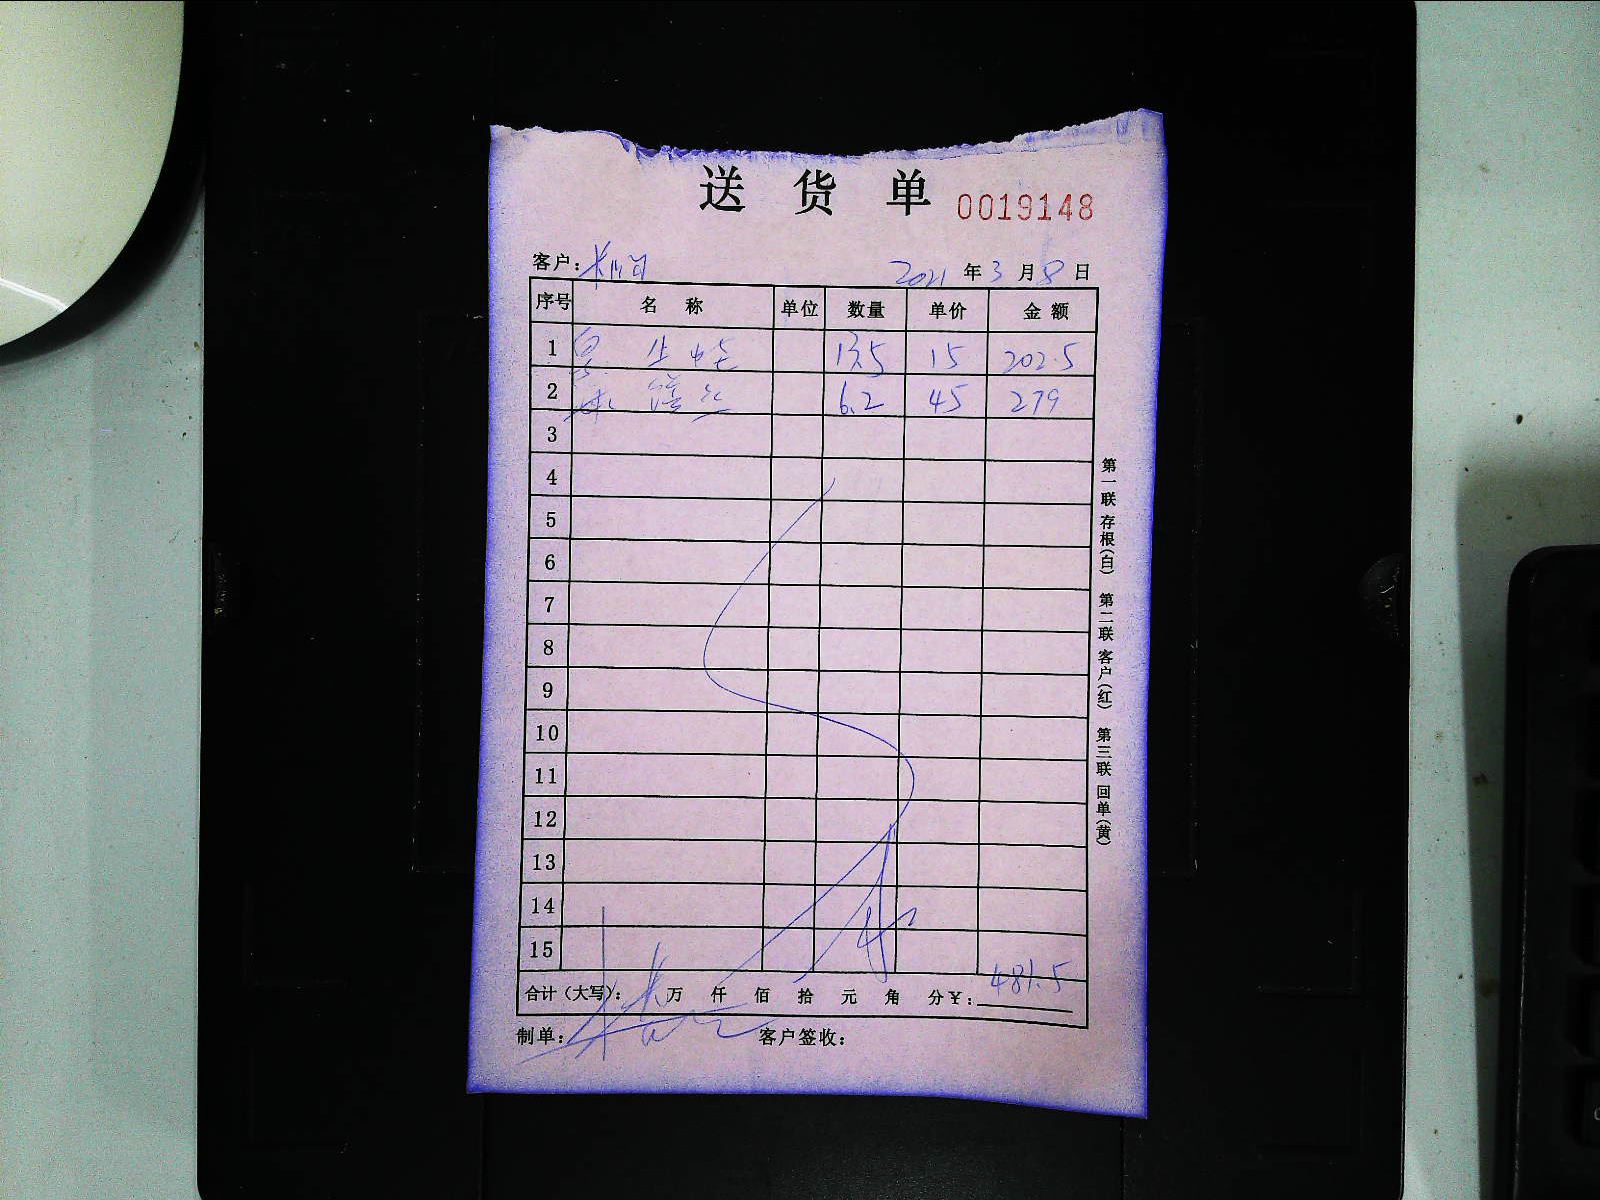 送货单 0019148
客户： 2021年3月8日
序号 名称 单位 数量 单价 金额
1 13.5 15 202.5
2 6.2 45 279
3
4
5
6
7
8
9
10
11
12
13
14
15
合计（大写）： 万 仟 佰 拾 元 角 分￥：481.5
制单： 客户签收：
第一联 存根(白) 第二联 客户(红) 第三联 回单(黄)